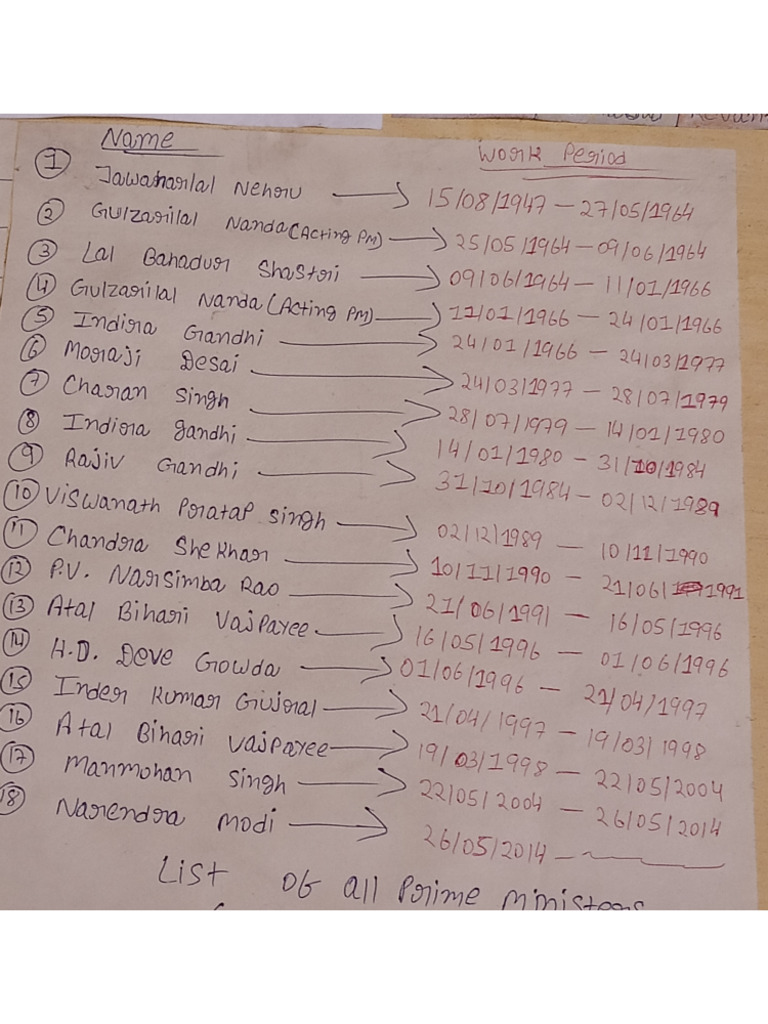 Name Work Period
① Jawaharlal Nehru → 15/08/1947 – 27/05/1964
② Gulzarilal Nanda (Acting PM) → 25/05/1964 – 09/06/1964
③ Lal Bahadur Shastri → 09/06/1964 – 11/01/1966
④ Gulzarilal Nanda (Acting PM) → 11/01/1966 – 24/01/1966
⑤ Indira Gandhi → 24/01/1966 – 24/03/1977
⑥ Moraji Desai → 24/03/1977 – 28/07/1979
⑦ Charan Singh → 28/07/1979 – 14/01/1980
⑧ Indira gandhi → 14/01/1980 – 31/10/1984
⑨ Rajiv Gandhi → 31/10/1984 – 02/12/1989
⑩ Viswanath Pratap singh → 02/12/1989 – 10/11/1990
⑪ Chandra Shekhar → 10/11/1990 – 21/06/1991
⑫ P.V. Narsimba Rao → 21/06/1991 – 16/05/1996
⑬ Atal Bihari Vajpayee → 16/05/1996 – 01/06/1996
⑭ H.D. Deve Gowda → 01/06/1996 – 21/04/1997
⑮ Inder Kumar Gujral → 21/04/1997 – 19/03/1998
⑯ Atal Bihari Vajpayee → 19/03/1998 – 22/05/2004
⑰ Manmohan Singh → 22/05/2004 – 26/05/2014
⑱ Narendra modi → 26/05/2014 –
List of all Prime ministers